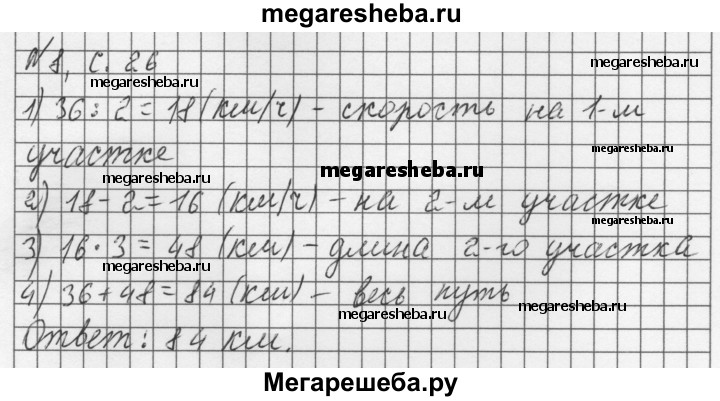 megaresheba.ru
№8, с. 26
megaresheba.ru
megaresheba.ru
1) 36 : 2 = 18 (км/ч) - скорость на 1-м
megaresheba.ru
участке
megaresheba.ru
megaresheba.ru
2) 18 - 2 = 16 (км/ч) - на 2-м участке
megaresheba.ru
megaresheba.ru
3) 16 · 3 = 48 (км) - длина 2-го участка
megaresheba.ru
4) 36 + 48 = 84 (км) - весь путь
megaresheba.ru
megaresheba.ru
Ответ: 84 км.
Мегарешеба.ру